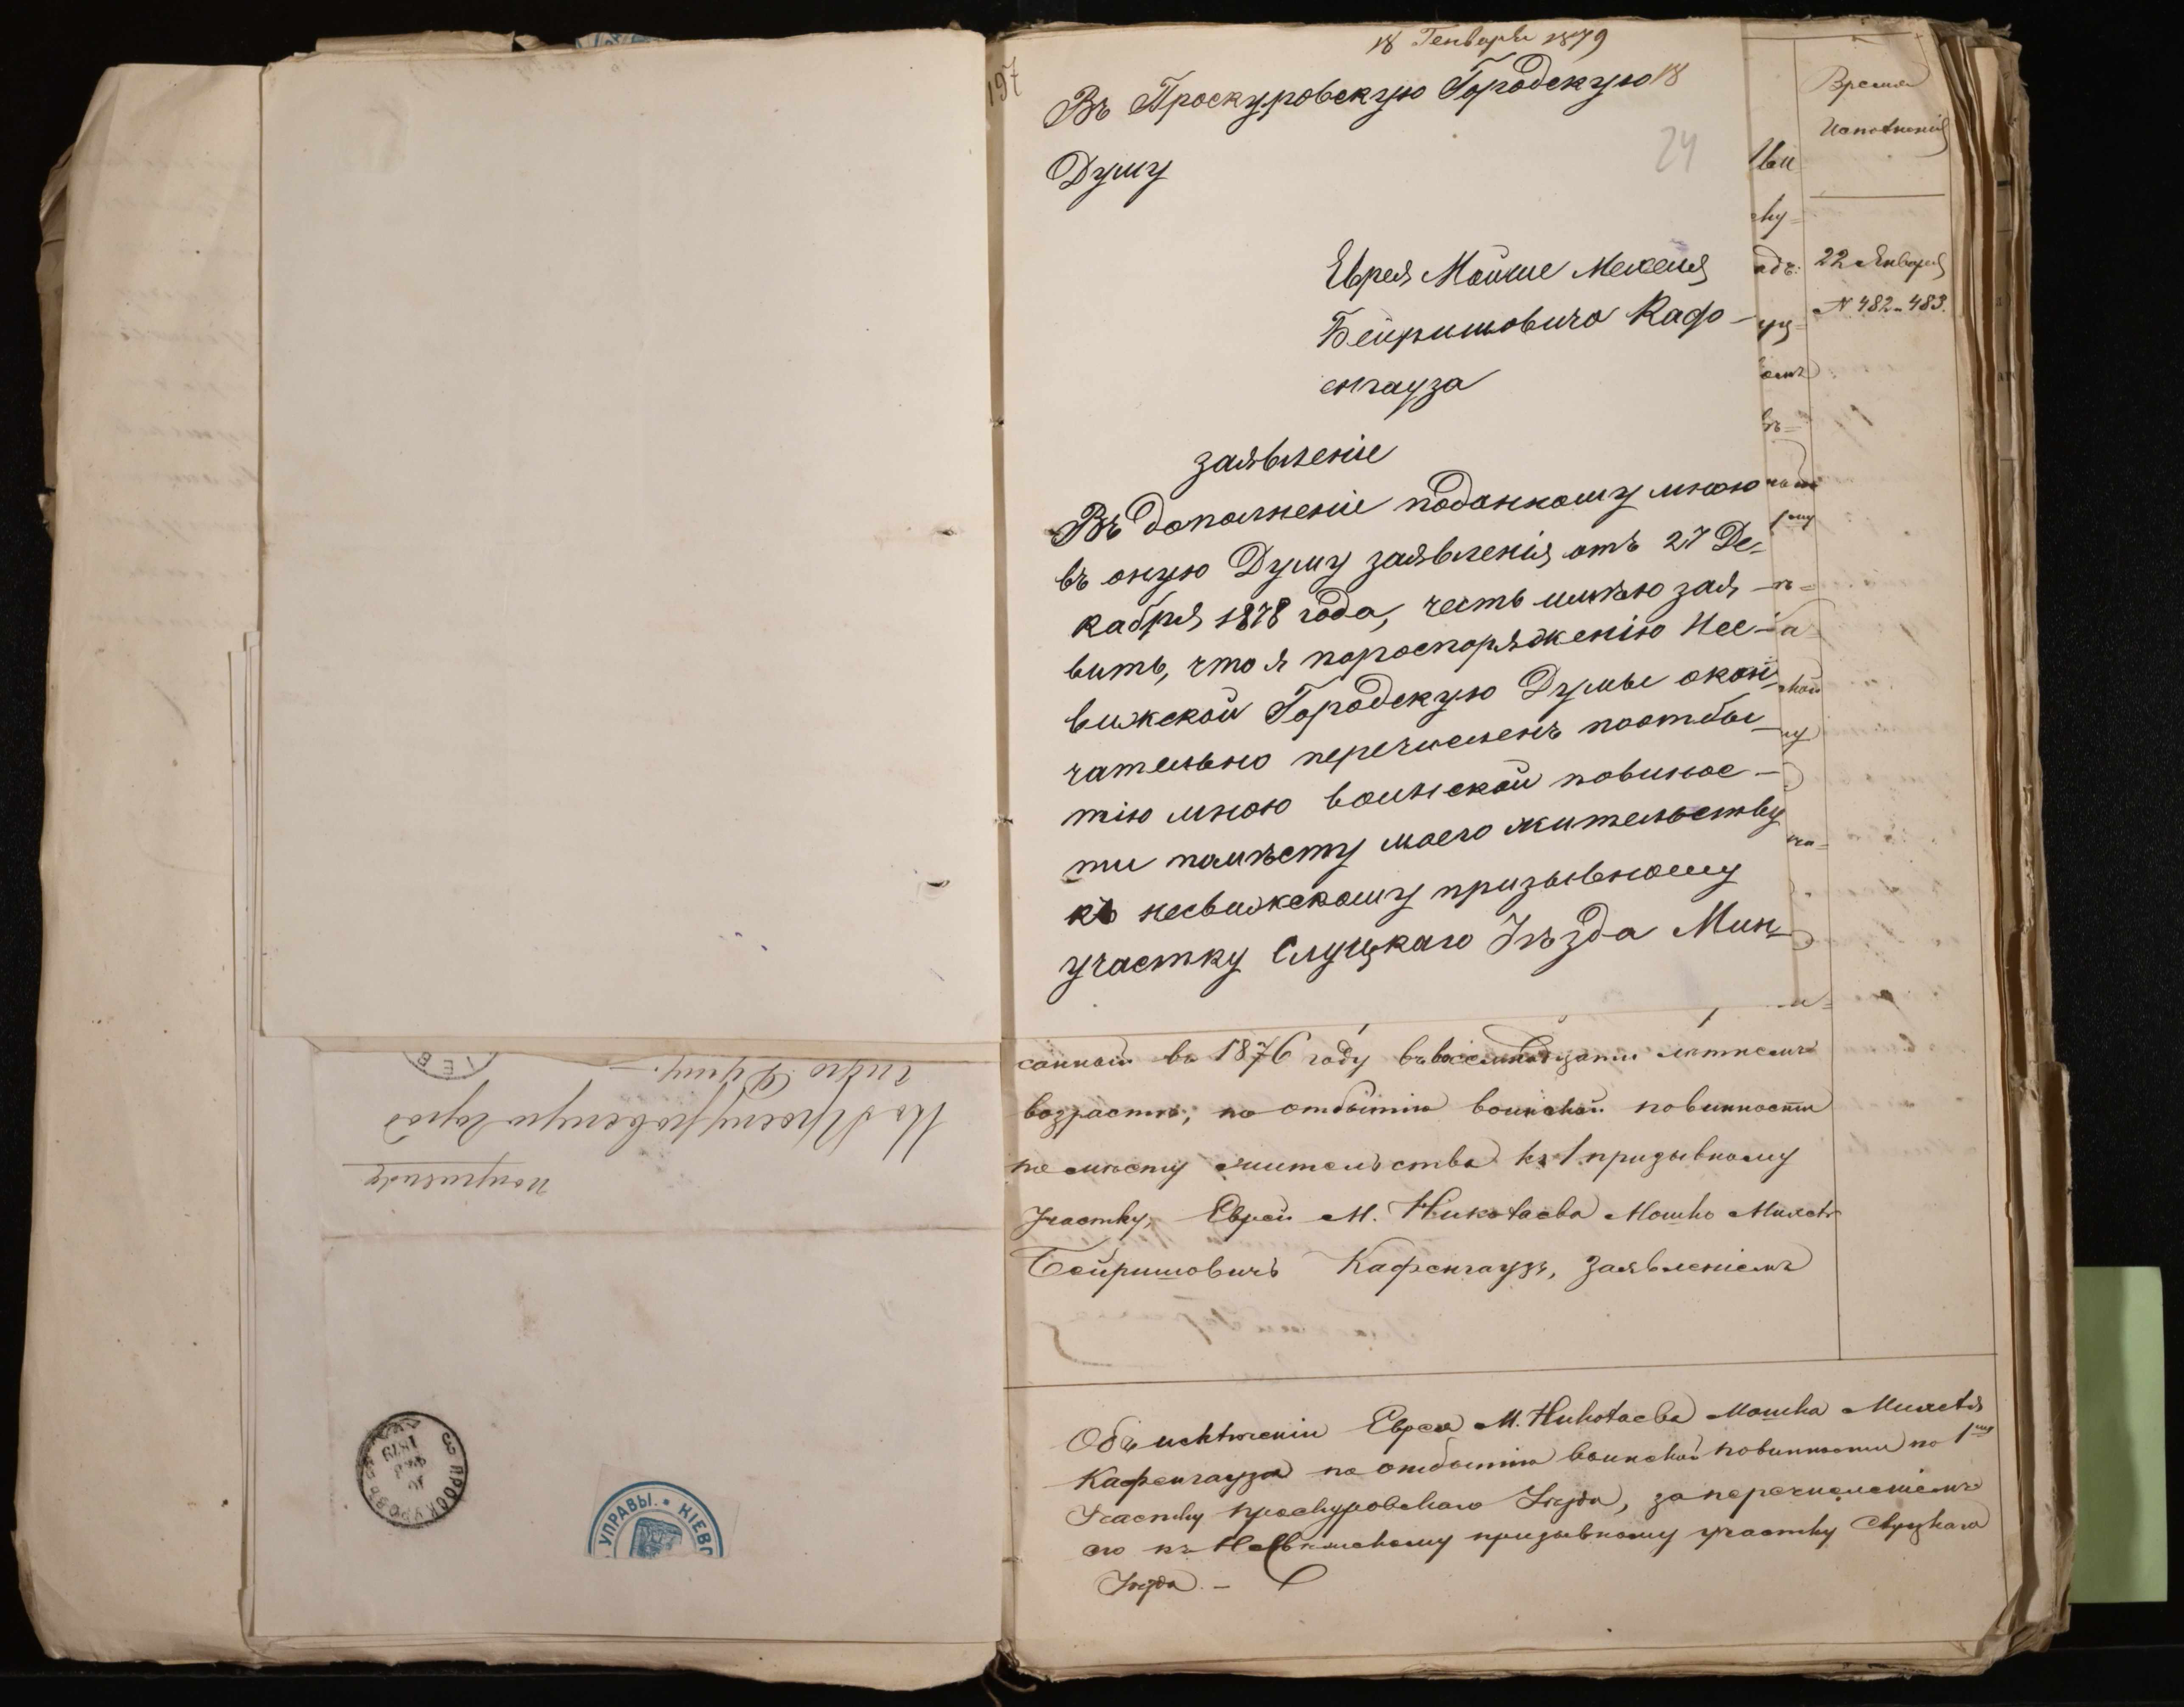 18 Генваря 1879
197
Въ Проскуровскую Городскую 18
24
Думу
Еврея Мойше Мехеля
Бейришовича Каф-
енгауза
заявленіе
Въ дополненіе поданному мною
въ оную Думу заявленія отъ 27 Де-
кабря 1878 года, честь имѣю зая-
вить, что я пораспоряженію Нес-
вижской Городскую Думы окон-
чательно перечисленъ поотбы-
тію мною воинской повинос-
ти помѣсту моего жительству
къ несвижскому призывному
участку Слуцкаго Уѣзда Мин-
Время
Исполненія
22 Января
№ 482-483.
санный въ 1876 году въ восемнадцати лѣтнемъ
возрастѣ, по отбытію воинской повинности
по мѣсту жительства къ 1 призывному
Участку, Еврей М. Николаева Мошко Михель
Бейришовичъ Кафенгаузъ, заявленіемъ
Объ исключеніи Еврея М. Николаева Мошка Михеля
Кафенгауза по отбытію воинской повинности по 1му
Участку Проскуровскаго Уѣзда, за перечисленіемъ
его къ Несвижскому призывному участку Слуцкаго
Уѣзда. -
Въ Проскуровскую Город
скую Думу.-
ПРОСКУРОВЪ
1879
УПРАВЫ. * КІЕВС